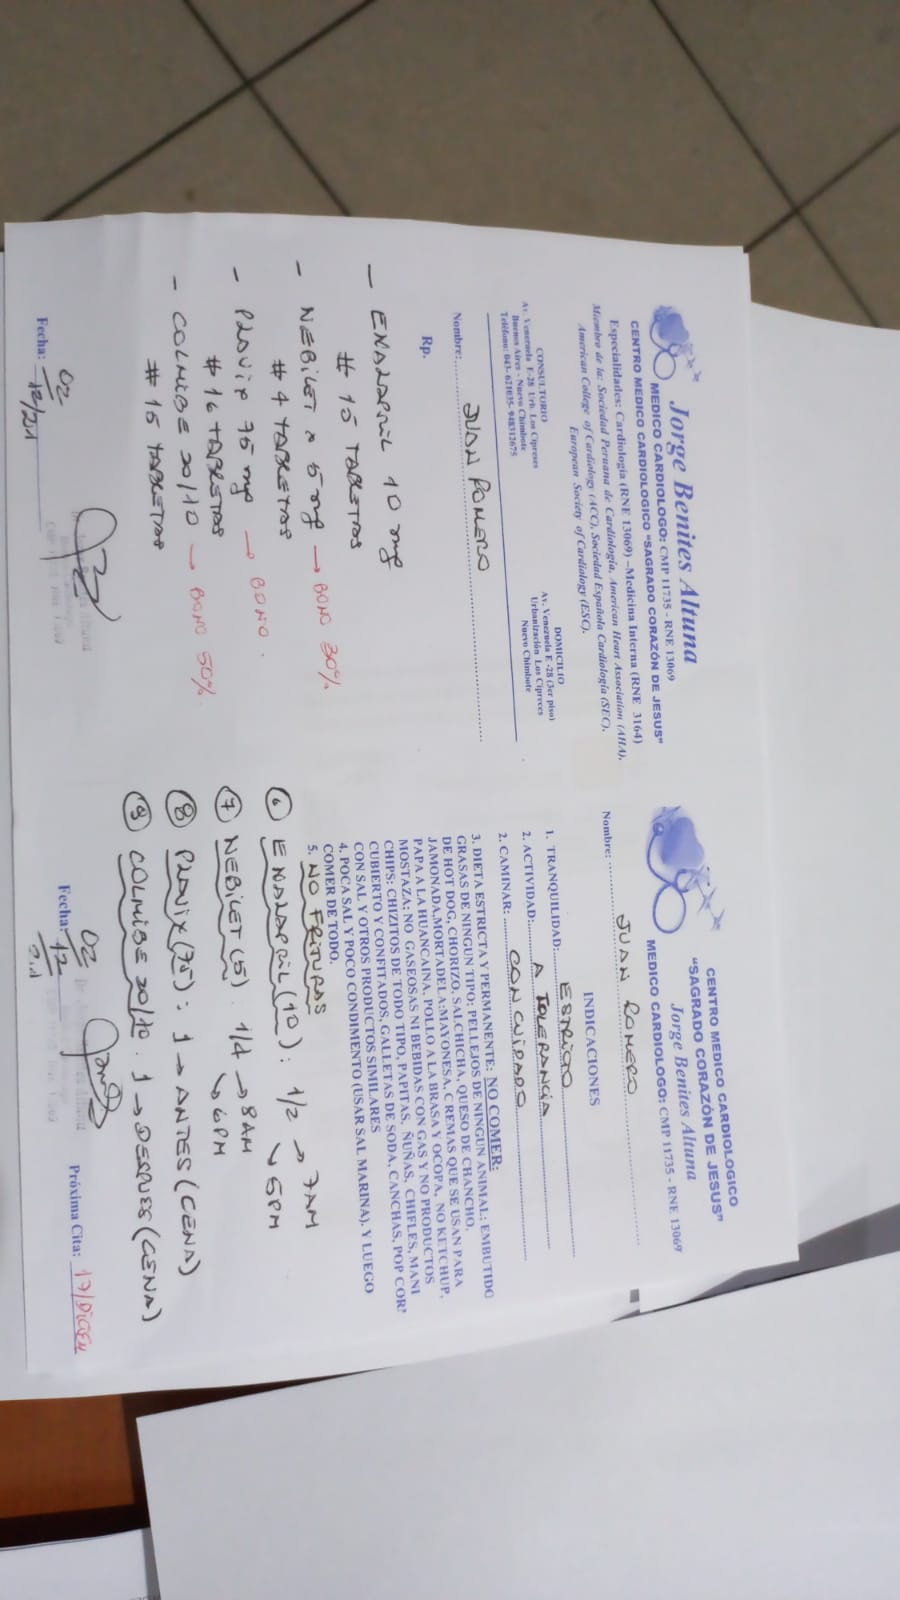 Jorge Benites Altuna
MEDICO CARDIOLOGO: CMP 11735 - RNE 13069
CENTRO MEDICO CARDIOLOGICO "SAGRADO CORAZÓN DE JESUS"
Especialidades: Cardiología (RNE 13069) –Medicina Interna (RNE 3164)
Miembro de la: Sociedad Peruana de Cardiología, American Heart Association (AHA),
American College of Cardiology (ACC), Sociedad Española Cardiología (SEC),
European Society of Cardiology (ESC).
CONSULTORIO
Av. Venezuela E-28 Urb. Los Cipreses
Buenos Aires - Nuevo Chimbote
Teléfono: 043- 621035- 948312675
DOMICILIO
Av. Venezuela E -28 (3er piso)
Urbanización Los Cipreces
Nuevo Chimbote
Nombre: JUAN ROMERO
Rp.
- ENALAPRIL 10 mg
# 15 TABLETAS
- NEBILET x 5 mg → BONO 30%
# 4 TABLETAS
- 75 mg → BONO.
# 16 TABLETAS
- COLMIBE 20/10 → BONO 50%
# 15 TABLETAS
Fecha: 02/12/21
CENTRO MEDICO CARDIOLOGICO
"SAGRADO CORAZÓN DE JESUS"
Jorge Benites Altuna
MEDICO CARDIOLOGO: CMP 11735 - RNE 13069
Nombre: JUAN ROMERO
INDICACIONES
1. TRANQUILIDAD:
2. ACTIVIDAD: A TOLERANCIA
2. CAMINAR: CON CUIDADO
3. DIETA ESTRICTA Y PERMANENTE: NO COMER:
GRASAS DE NINGUN TIPO; PELLEJOS DE NINGUN ANIMAL; EMBUTIDO
DE HOT DOG, CHORIZO, SALCHICHA, QUESO DE CHANCHO,
JAMONADA,MORTADELA;MAYONESA, CREMAS QUE SE USAN PARA
PAPA A LA HUANCAINA, POLLO A LA BRASA Y OCOPA, NO KETCHUP,
MOSTAZA; NO GASEOSAS NI BEBIDAS CON GAS Y NO PRODUCTOS
CHIPS: CHIZITOS DE TODO TIPO, PAPITAS, ÑUÑAS, CHIFLES, MANI
CUBIERTO Y CONFITADOS, GALLETAS DE SODA, CANCHAS, POP COR
CON SAL Y OTROS PRODUCTOS SIMILARES
4. POCA SAL Y POCO CONDIMENTO (USAR SAL MARINA). Y LUEGO
COMER DE TODO.
5. NO FRITURAS
6 ENALAPRIL (10): 1/2 → 7AM
↘ 5PM
7 NEBILET (5): 1/4 → 8AM
↘ 6PM
8 PLAVIX (75): 1 → ANTES (CENA)
9 COLMIBE 20/10. 1 → DESPUES (CENA)
Fecha: 02/12
Próxima Cita: